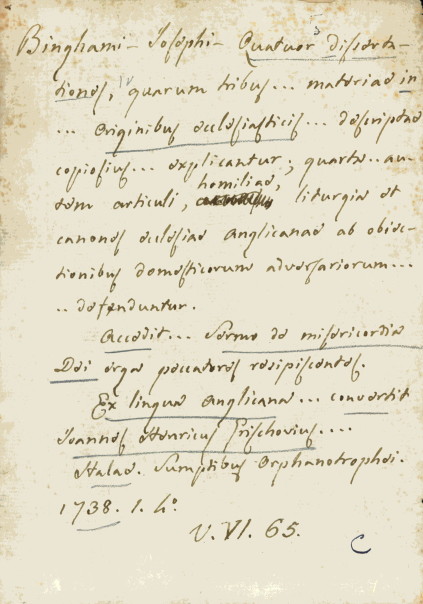 Binghami - Josephi - Quatuor disserta-
tiones, quarum tribus... materiae in
... originibus ecclesiasticis... descriptae
copiosius... explicantur; quarta.. au-
tem articuli, homiliae, liturgia et
canones ecclesiae anglicanae ab obiec-
tionibus domesticorum adversariorum...
.. defenduntur.
Accedit... Sermo de misericordia
Dei erga peccatores resipiscentes.
Ex lingua anglicana... convertit
Joannes Henricus Grischovius....
Halae. Sumptibus Orphanotrophei.
1738. 1. 4°
V. VI. 65.
C